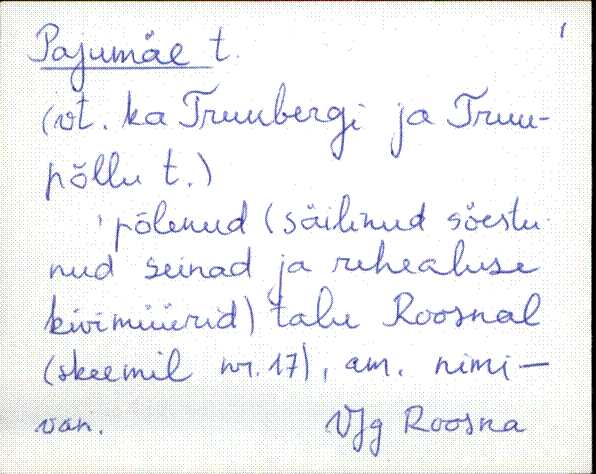 Pajumäe t. 1
(vt. ka Truubergi ja Truu-
põllu t.)
põlenud (säilinud söestu-
nud seinad ja rehealuse
kivimüürid) talu Roosnal
(skeemil nr. 17), am. nimi-
van. VJg Roosna